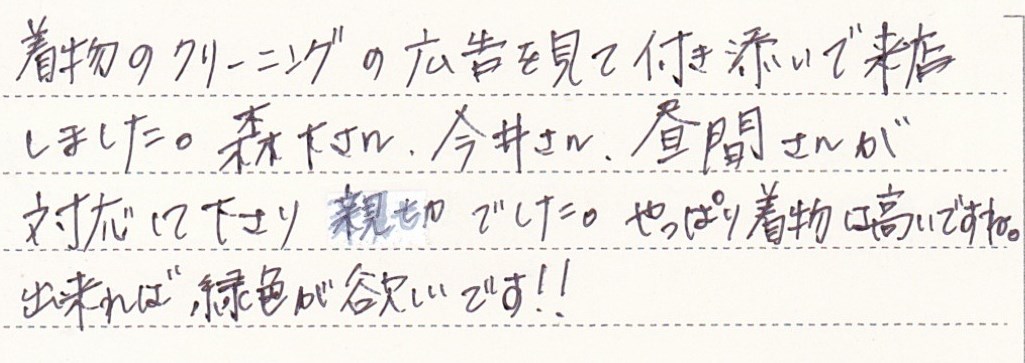 着物のクリーニングの広告を見て付き添いで来店
しました。森下さん、今井さん、昼間さんが
対応して下さり親切でした。やっぱり着物は高いですね。
出来れば、緑色が欲しいです!!